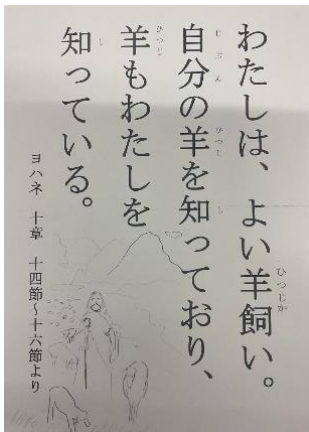 わたしは、よい羊飼い。
自分の羊を知っており、
羊もわたしを
知っている。
ヨハネ 十章 十四節~十六節より